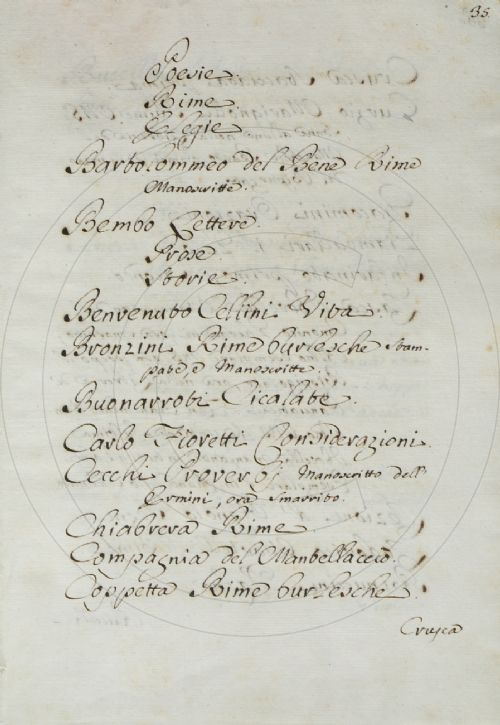 35.
Poesie.
Rime.
Elegie.
Bartolommeo del Bene Rime
Manoscritte.
Bembo Lettere.
Prose.
Storie.
Benvenuto Cellini Vita.
Bronzini Rime burlesche Stam-
pate, e Manoscritte.
Buonarroti Cicalate.
Carlo Fioretti Considerazioni.
Cecchi Proverbj Manoscritto dell
Ermini, ora smarrito.
Chiabrera Rime.
Compagnia del Mantellaccio.
Coppetta Rime burlesche.
Crusca